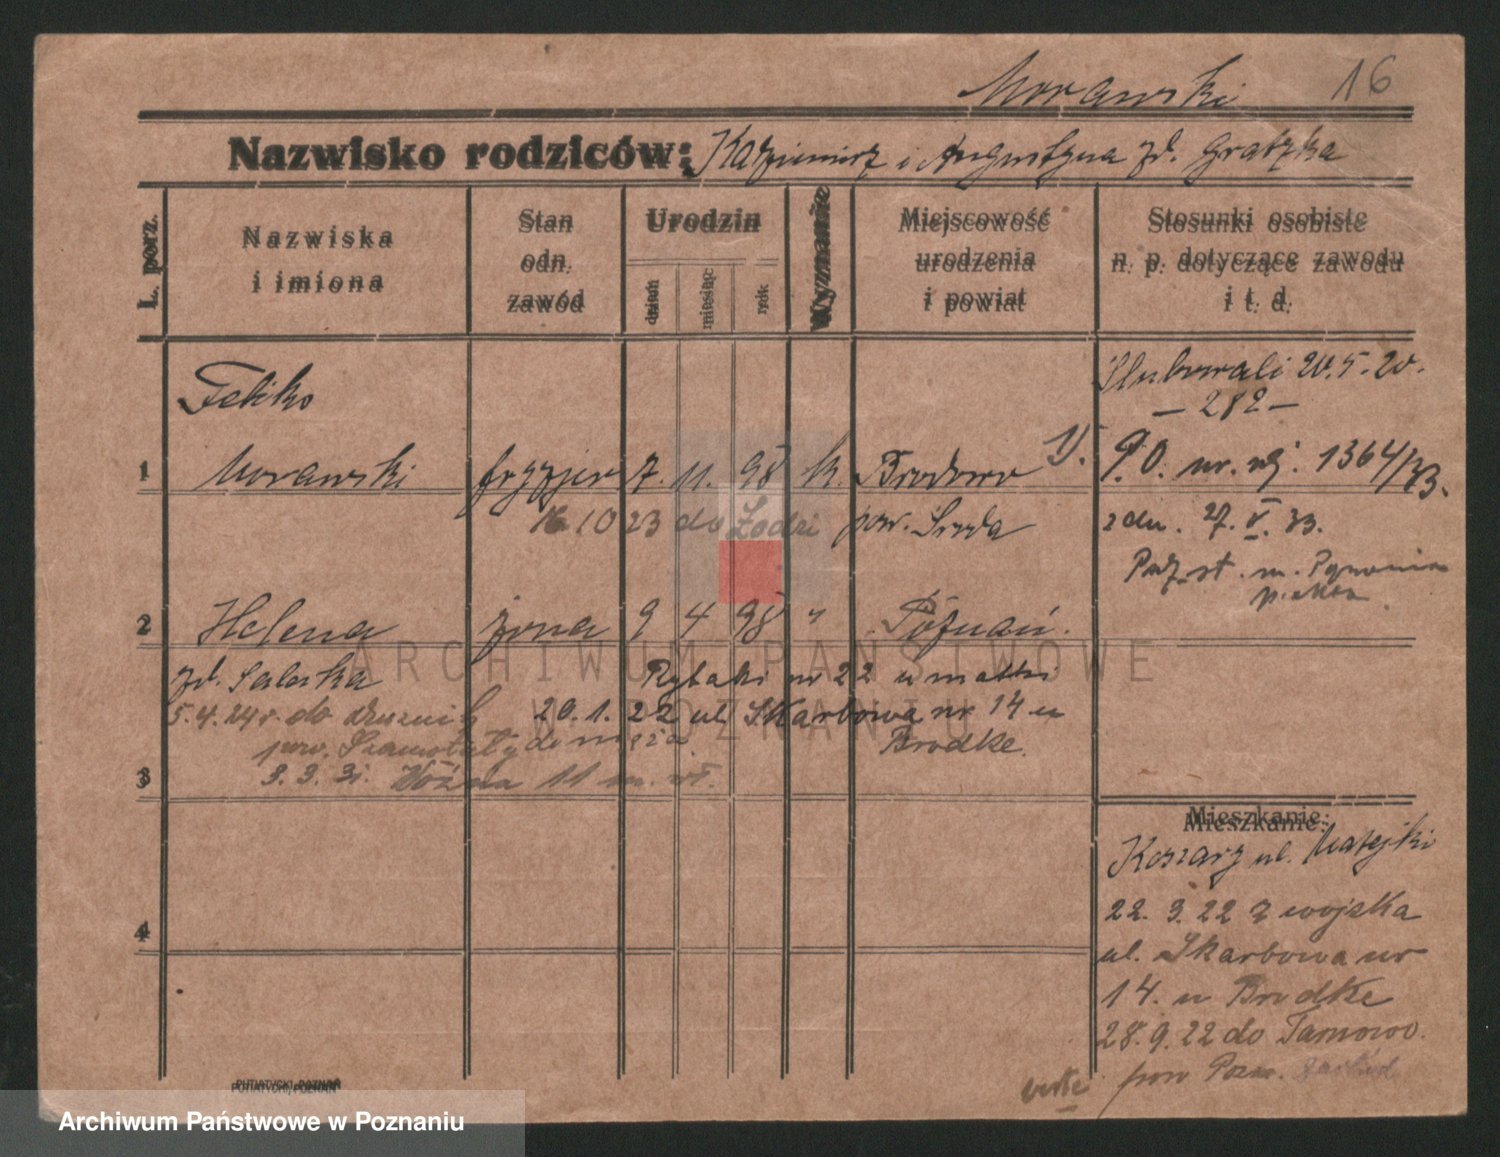 Morawski 16
Nazwisko rodziców: Kazimierz i Augustyna zd. Gratzka
L. porz.
Nazwiska
i imiona
Stan
odn.
zawód
Urodzin
dzień
miesiąc
rok
Wyznanie
Miejscowość
urodzenia
i powiat
Stosunki osobiste
n. p. dotyczące zawodu
i t. d.
Ślubowali 20.5.20.
— 282 —
Feliks
1 Morawski fryzjer 7. 11. 98 k. Brodowo 1). P.O. nr. rej. 1364/33.
16.10 23 do Łodzi pow. Środa z dn. 27. V. 33.
2 Helena żona 9 4 98 " Poznań.
zd. Salaska Rybaki nr 22 u matki
5.4.24 r. do 20.1.22 ul. Skarbowa nr 14 u
pow. Szamotuły do męża Brodke.
3.3.31. Woźna 11 m. wł.
3
Mieszkanie:
Koszary ul. Matejki
22. 3. 22 z wojska
4
ul. Skarbowa nr
14. u Brodke
28.9.22 do Tarnowo.
pow Pozn.
verte
PUTIATYCKI, POZNAŃ
ARCHIWUM PAŃSTWOWE
W POZNANIU
Archiwum Państwowe w Poznaniu